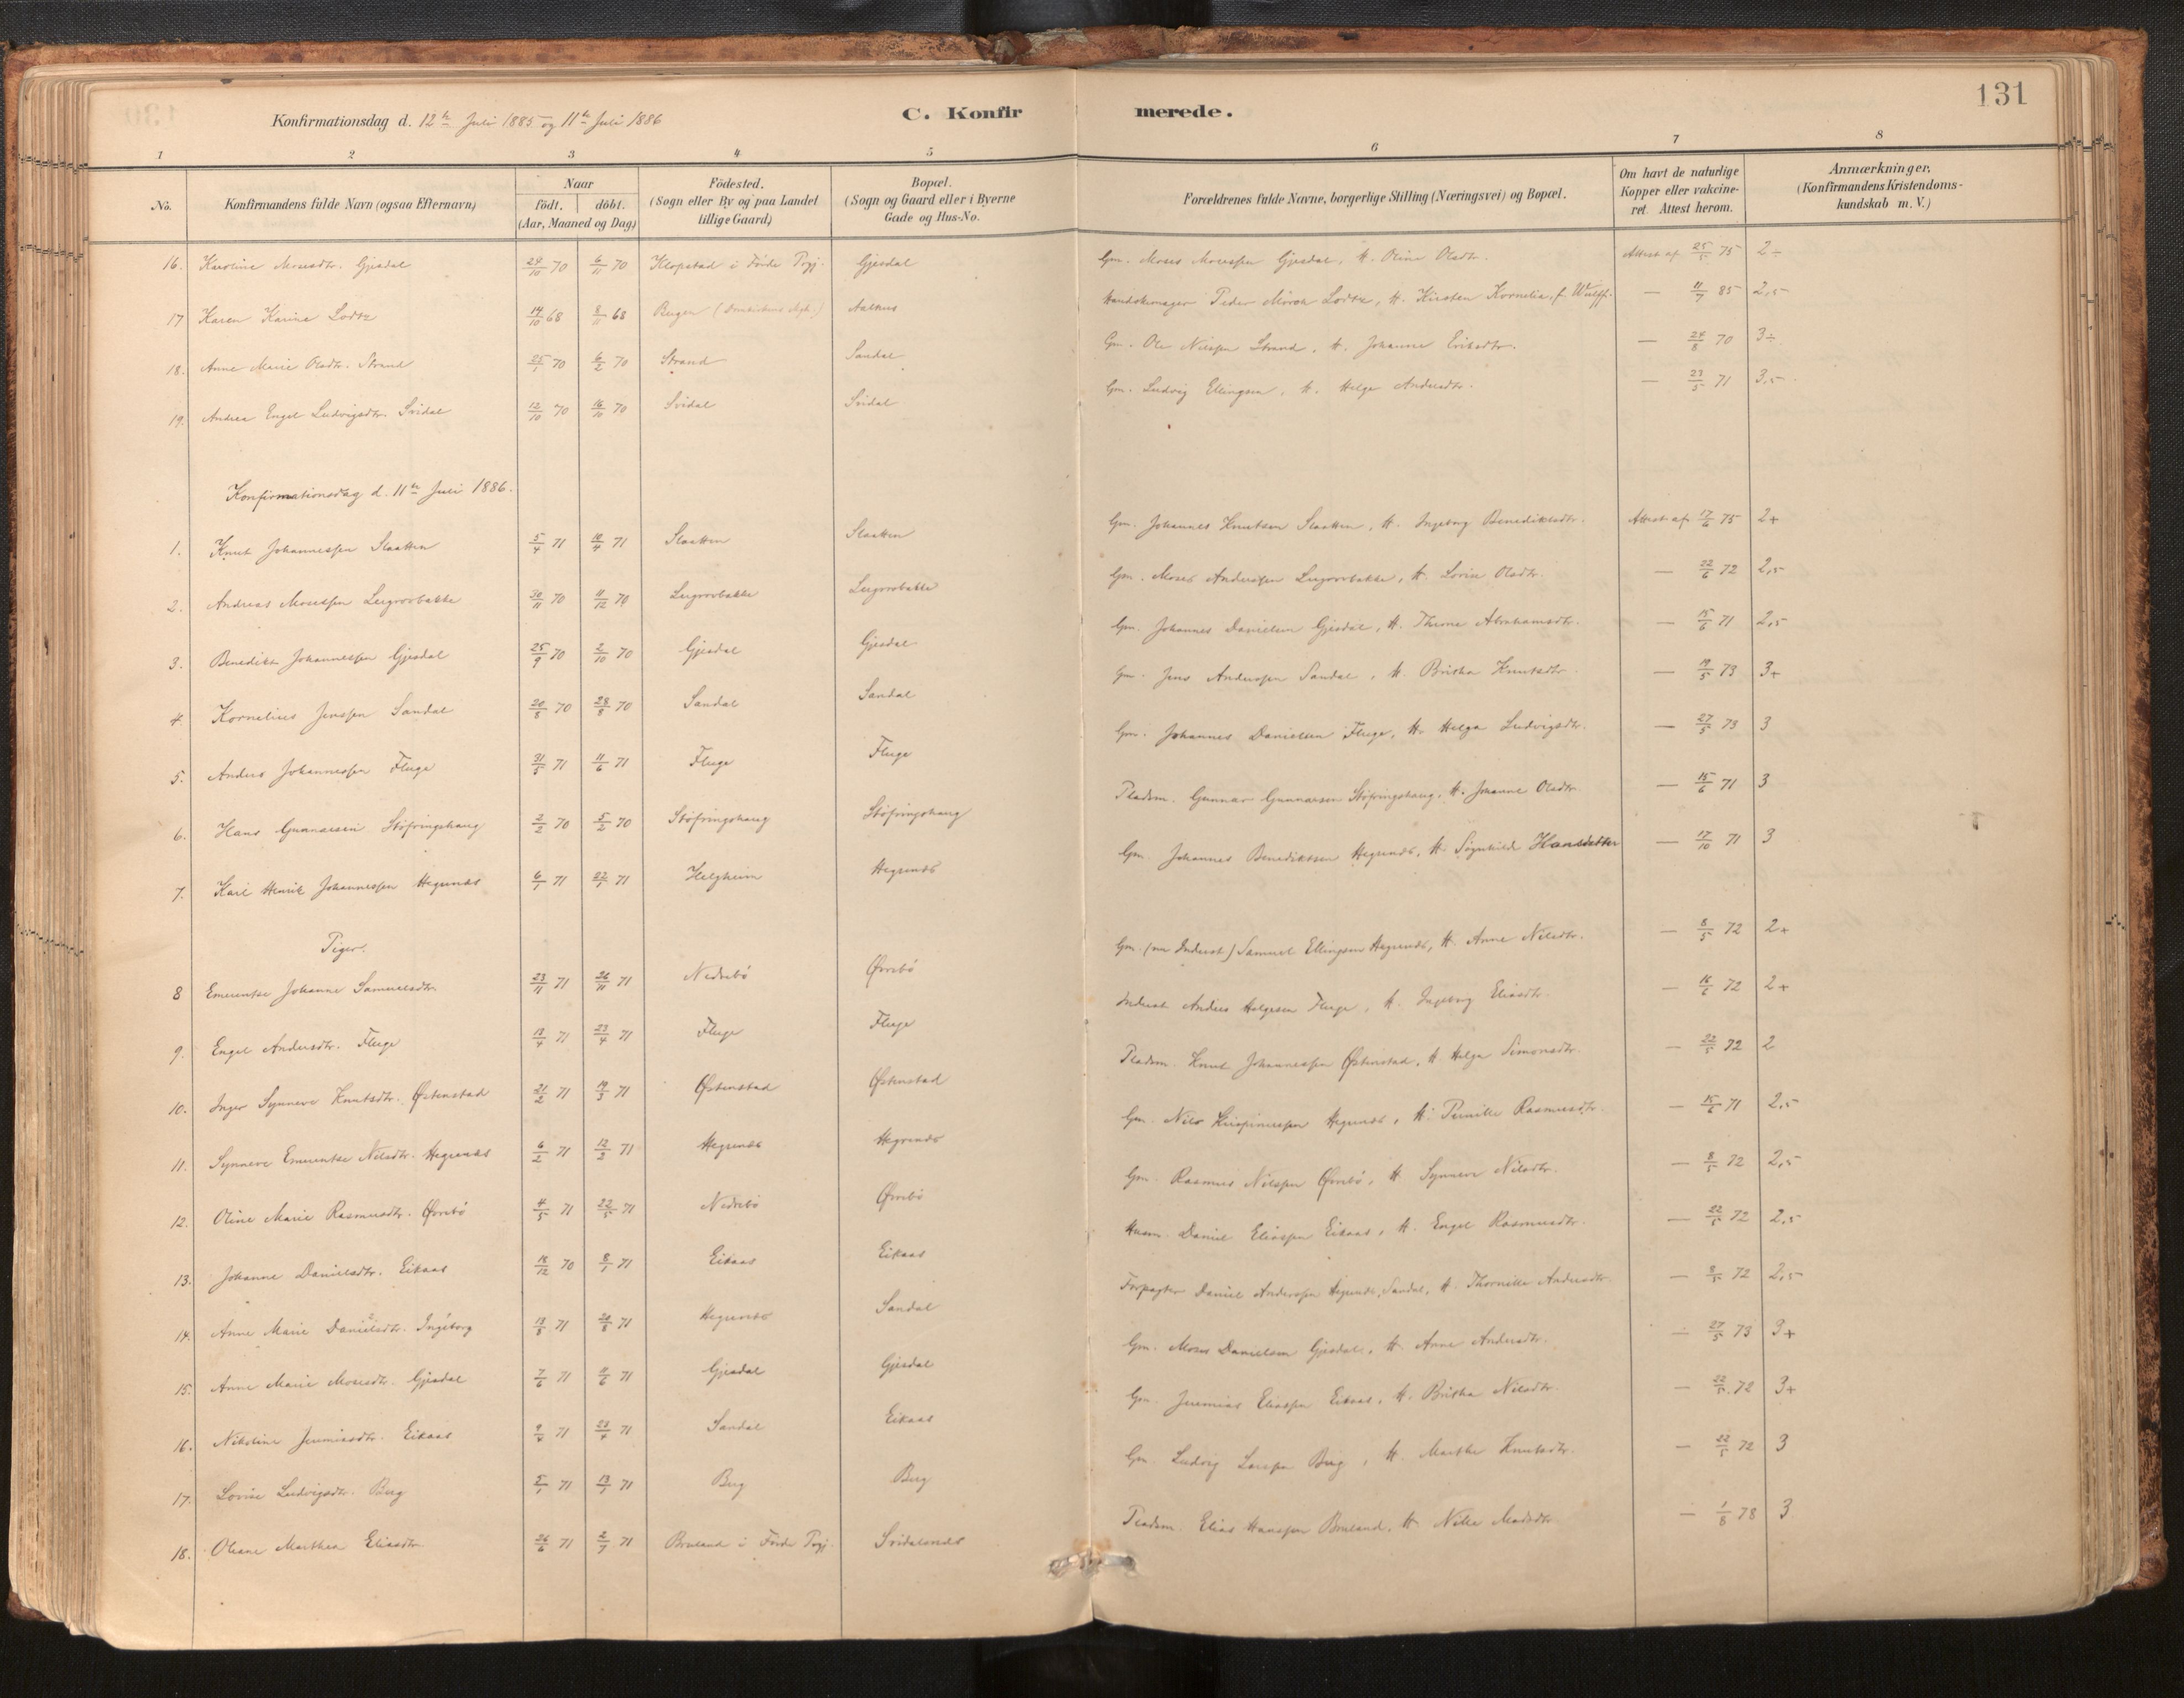 131
Konfirmationsdag d. 12te Juli 1885 og 11te Juli 1886
C. Konfirmerede.
1 2 3 4 5 6 7 8
No. Konfirmandens fulde Navn (ogsaa Efternavn) Naar födt. döbt. (Aar, Maaned og Dag) Födested. (Sogn eller By og paa Landet tillige Gaard) Bopæl. (Sogn og Gaard eller i Byerne Gade og Hus-No. Forældrenes fulde Navne, borgerlige Stilling (Næringsvei) og Bopæl. Om havt de naturlige Kopper eller vakcineret. Attest herom. Anmærkninger. (Konfirmandens Kristendomskundskab m. V.)
16. Karoline Mosesdtr. Gjesdal 29/10 70 6/11 70 Klopstad i Förde Prgj. Gjesdal Gm. Moses Mosessen Gjesdal, H. Oline Olsdtr. Attest af 25/5 75 2÷
17 Karen Karine Lodtz 14/10 68 8/11 68 Bergen Aalhus Handskemager Peder Mörch Lodtz, H. Kirsten Kornelia, f. Wulff. — 11/7 85 2,5
18. Anne Marie Olsdtr. Strand 25/1 70 6/2 70 Strand Sandal Gm. Ole Nilssen Strand, H. Johanne Eriksdtr. — 24/8 70 3÷
19. Andrea Engel Ludvigsdtr. Svidal 12/10 70 16/10 70 Svidal Svidal Gm. Ludvig Ellingsen, H. Helga Andersdtr. — 23/5 71 3,5
Konfirmationsdag d. 11te Juli 1886.
1. Knut Johannessen Slaatten 5/4 71 10/4 71 Slaatten Slaatten Gm. Johannes Knutsen Slaatten, H. Ingeborg Benediktsdtr. Attest af 17/6 75 2+
2. Andreas Mosessen Lergrovbakke 30/11 70 11/12 70 Lergrovbakke Lergrovbakke Gm. Moses Anderssen Lergrovbakke, H. Lovise Olsdtr. — 22/6 72 2,5
3. Benedikt Johannessen Gjesdal 25/9 70 2/10 70 Gjesdal Gjesdal Gm. Johannes Danielsen Gjesdal, H. Thrine Abrahamsdtr. — 15/6 71 2,5
4. Kornelius Jenssen Sandal 20/8 70 28/8 70 Sandal Sandal Gm. Jens Anderssen Sandal, H. Britha Knutsdtr — 19/5 73 3+
5. Anders Johannessen Fluge 31/5 71 11/6 71 Fluge Fluge Gm. Johannes Danielsen Fluge, H. Helga Ludvigsdtr. — 27/5 73 3
6. Hans Gunnarsen Stöfringshaug 2/2 70 5/2 70 Stöfringshaug Stöfringshaug Pladsm. Gunnar Gunnarsen Stöfringshaug, H. Johanne Olsdtr. — 15/6 71 3
7. Karl Henrik Johannessen Hegrenæs 6/1 71 22/1 71 Helgheim Hegrenæs Gm. Johannes Benediktsen Hegrenæs, H. Sognhilde Hansdatter — 17/10 71 3
Piger.
8 Emerentse Johanne Samuelsdtr. 23/11 71 26/11 71 Nedrebö Övrebö Gm. (nu Inderst) Samuel Ellingsen Hegrenæs, H. Anne Nilsdtr. — 8/5 72 2+
9. Engel Andersdtr. Fluge 13/4 71 23/4 71 Fluge Fluge Inderst Anders Helgesen Fluge, H. Ingeborg Eliasdtr. — 16/6 72 2+
10. Inger Synneve Knutsdtr. Östenstad 21/2 71 19/3 71 Östenstad Östenstad Pladsm. Knut Johannessen Östenstad, H. Helga Simonsdtr. — 22/5 72 2
11. Synneve Emerentse Nilsdtr. Hegrenæs 6/2 71 12/2 71 Hegrenæs Hegrenæs Gm. Nils Krispinussen Hegrenæs, H. Pernille Rasmusdtr. — 15/6 71 2,5
12. Oline Marie Rasmusdtr. Övrebö 4/5 71 22/5 71 Nedrebö Övrebö Gm. Rasmus Nilssen Övrebö, H. Synneve Nilsdtr. — 8/5 72 2,5
13. Johanne Danielsdtr. Eikaas 18/12 70 8/1 71 Eikaas Eikaas Husm. Daniel Eliassen Eikaas, H. Engel Rasmusdtr. — 22/5 72 2,5
14. Anne Marie Danielsdtr. Ingeborg 13/8 71 20/8 71 Hegrenæs Sandal Forpagter Daniel Anderssen Hegrenæs, Sandal, H. Thornille Andersdtr. — 8/5 72 2,5
15. Anne Marie Mosesdtr. Gjesdal 7/6 71 11/6 71 Gjesdal Gjesdal Gm. Moses Danielsen Gjesdal, H. Anne Andersdtr. — 27/5 73 3+
16. Nikoline Jeremiasdtr. Eikaas 9/4 71 23/4 71 Sandal Eikaas Gm. Jeremias Eliassen Eikaas, H. Britha Nilsdtr. — 22/5 72 3+
17. Lovise Ludvigsdtr. Berg 5/1 71 13/1 71 Berg Berg Gm. Ludvig Larssen Berg, H. Marthe Knutsdtr. — 22/5 72 3
18. Oliane Marthea Eliasdtr. 26/6 71 2/7 71 Bruland i Förde Prgj. Svidalsnæs Pladsm. Elias Hanssen Bruland, H. Nille Madsdtr. — 1/8 78 3